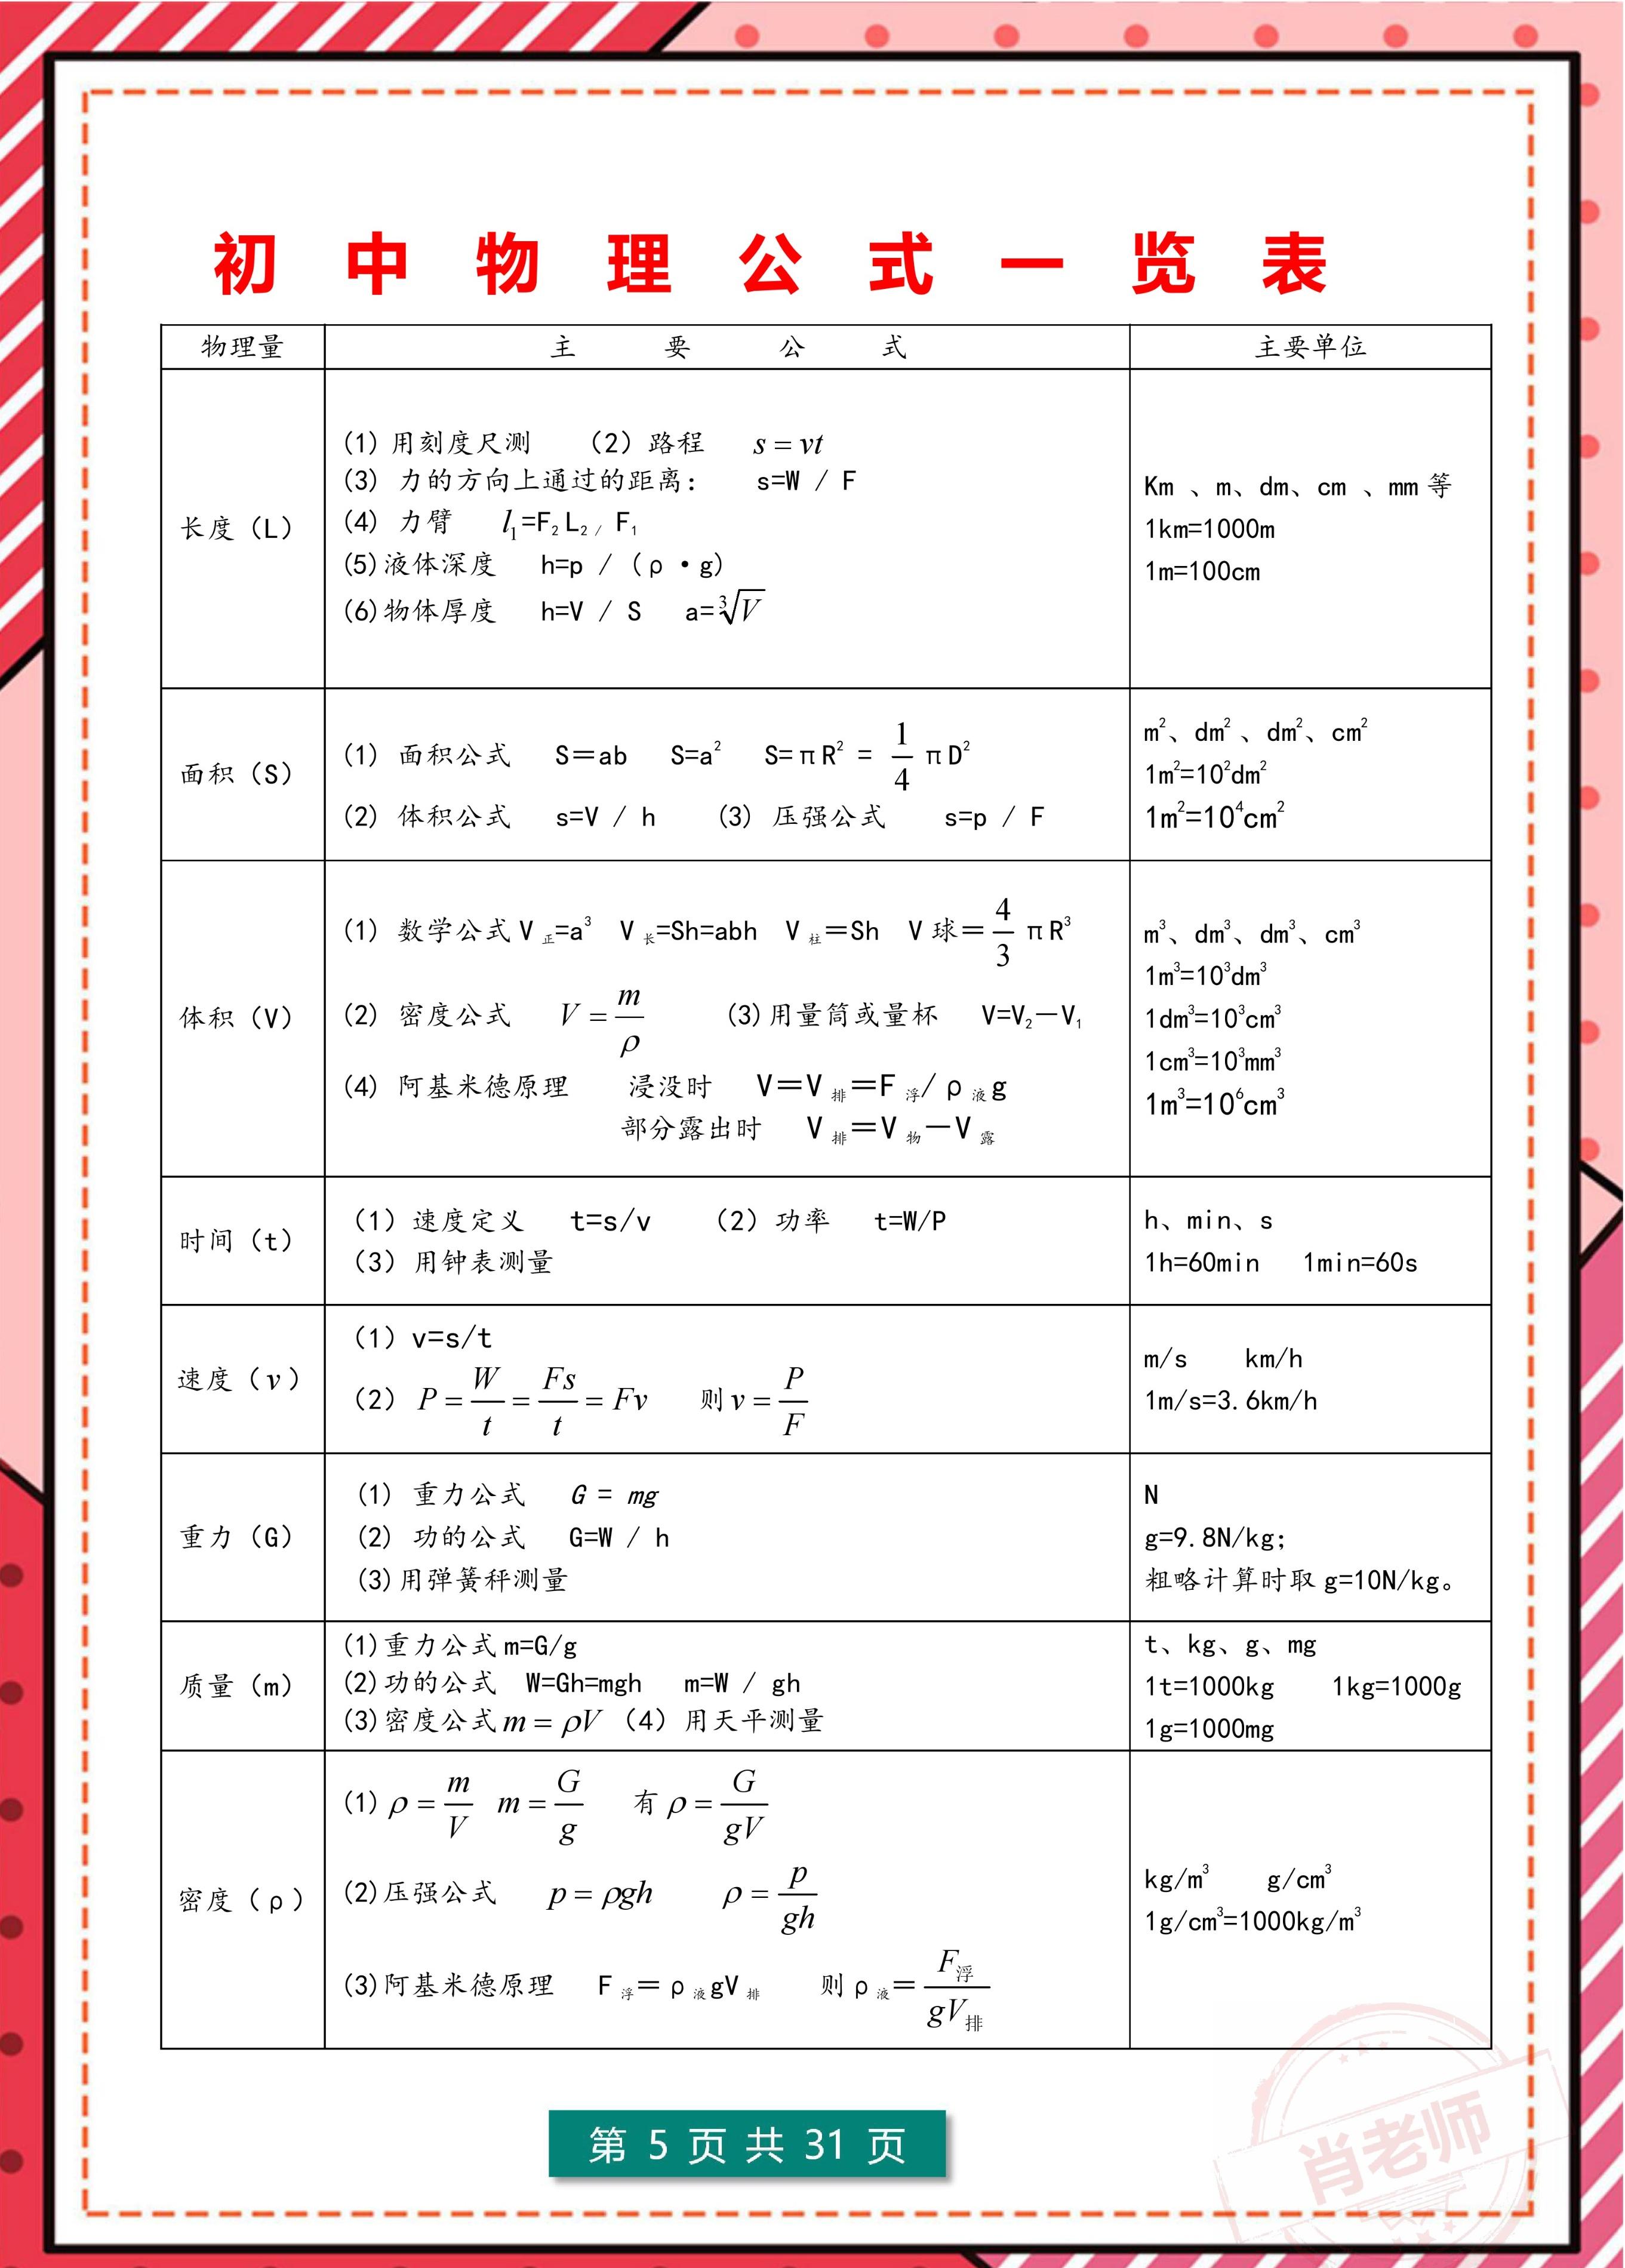 初中物理公式一览表
物理量 主要公式 主要单位
长度（L）
(1) 用刻度尺测 （2）路程 s = vt
(3) 力的方向上通过的距离： s=W / F
(4) 力臂 l₁=F₂L₂/ F₁
(5)液体深度 h=p /（ρ·g）
(6)物体厚度 h=V / S a=∛V
Km 、m、dm、cm 、mm 等
1km=1000m
1m=100cm
面积（S）
(1) 面积公式 S＝ab S=a² S=πR² = 1/4 πD²
(2) 体积公式 s=V / h (3) 压强公式 s=p / F
m²、dm² 、dm²、cm²
1m²=10²dm²
1m²=10⁴cm²
体积（V）
(1) 数学公式 V正=a³ V长=Sh=abh V柱＝Sh V球＝4/3 πR³
(2) 密度公式 V = m/ρ (3)用量筒或量杯 V=V₂－V₁
(4) 阿基米德原理 浸没时 V＝V排＝F浮/ρ液g
部分露出时 V排＝V物－V露
m³、dm³、dm³、cm³
1m³=10³dm³
1dm³=10³cm³
1cm³=10³mm³
1m³=10⁶cm³
时间（t）
（1）速度定义 t=s/v （2）功率 t=W/P
（3）用钟表测量
h、min、s
1h=60min 1min=60s
速度（v）
（1）v=s/t
（2）P = W/t = Fs/t = Fv 则 v = P/F
m/s km/h
1m/s=3.6km/h
重力（G）
(1) 重力公式 G = mg
(2) 功的公式 G=W / h
(3)用弹簧秤测量
N
g=9.8N/kg；
粗略计算时取 g=10N/kg。
质量（m）
(1)重力公式 m=G/g
(2)功的公式 W=Gh=mgh m=W / gh
(3)密度公式 m = ρV （4）用天平测量
t、kg、g、mg
1t=1000kg 1kg=1000g
1g=1000mg
密度（ρ）
(1) ρ = m/V m = G/g 有 ρ = G/gV
(2)压强公式 p = ρgh ρ = p/gh
(3)阿基米德原理 F浮＝ρ液gV排 则 ρ液＝F浮/gV排
kg/m³ g/cm³
1g/cm³=1000kg/m³
第 5 页 共 31 页
肖老师